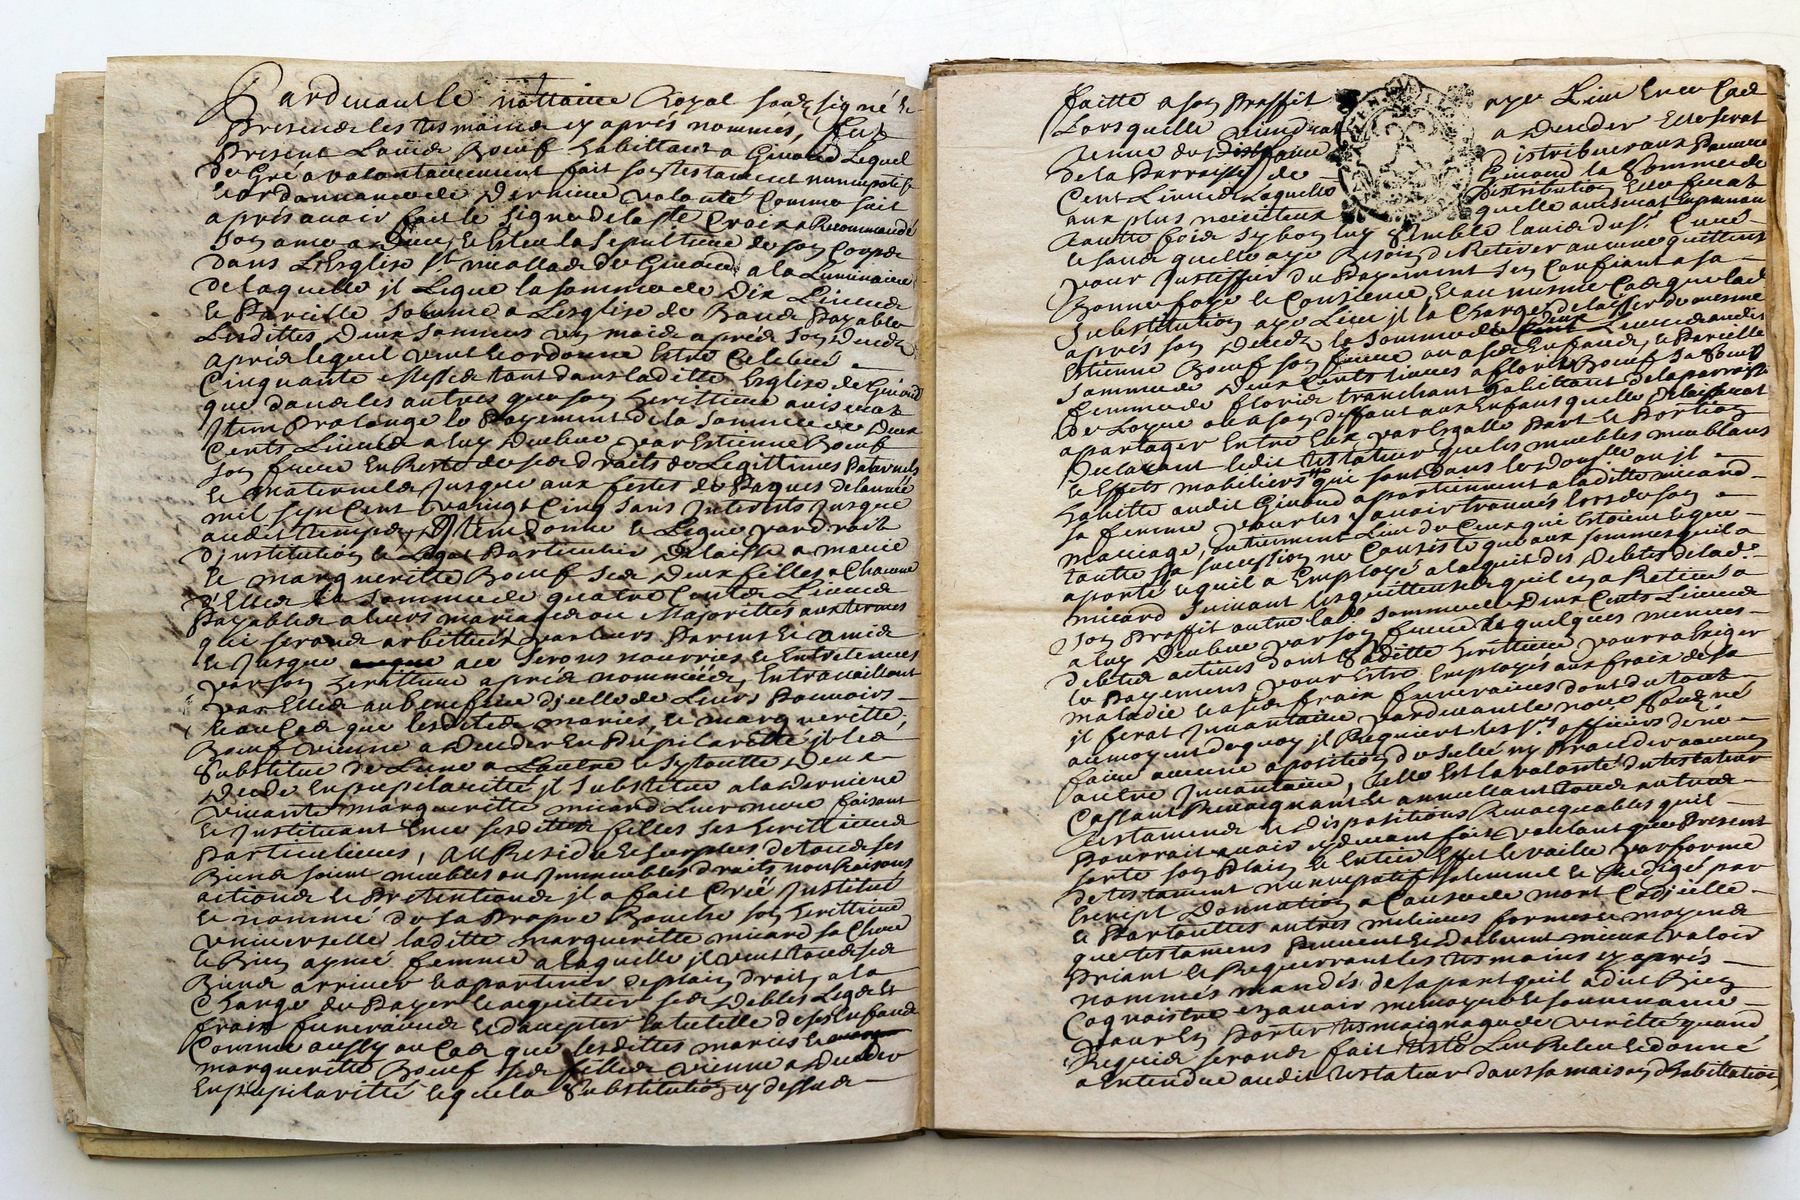 Pardevant le nottaire Royal sousigné &
Presence les tesmoins cy après nommés, fut
Present Louis Bœuf habittant a Givord Lequel
de Gré a volontairement fait son testament nuncupatif
& ordonnance de derniere volonté Comme suit
après avoir fait le signe de la Ste Croix & Recommandé
son ame a Dieu, & Esleu la sepulture de son Corps
dans L'Esglise St nicollas de Givord, a la Luminaire
de laquelle il Legue la somme de Dix Livres
& Pareille somme a Lesglise de Payable
Lesdittes Deux sommes un mois après son Decès
après lequel veut & ordonne Estre Celebré
Cinquante Messes tant dans laditte Esglise de Givord
que dans les autres que son herittiere avisera
Item Prolonge le Payement de la somme de Deux
Cents Livres a luy Deube par Estienne Bœuf
son frere En Reste de ses droits de Legittimes Paternels
& maternels Jusque aux festes de Paques de lannée
mil sept Cent vaingt Cinq sans Interets Jusque
audit temps, Item donne & Legue par droit
d'institution & Legat Particulier, delaisse a marie
& margueritte Bœuf ses Deux filles a Chacune
d'Elles la somme de quatre Cents Livres
Payables a leurs mariages ou Majorittés aux termes
qui seront arbittrés par leurs Parens & amis
& Jusque a ce serons nourries & Entretenues
par son herittiere après nommée, En travaillant
par Elles au benefice d'icelle de Leurs Pouvoirs
& au Cas que lesdites maries & margueritte
Bœuf vienne a Deceder En Pupilaritté il les
Substitue de Lune a Lautre & sy toutte Deux
Decede En pupilaritté il substitue a la derniere
vivante marguerritte micard Leur mere faisant
& Instituant avec sesdites filles ses herittieres
particulieres, Au Residu & surplus de tous ses
Biens soient meubles ou Immeubles droits noms Raisons
actions & Pretentions il a fait Créé Institué
& nommé de sa Propre Bouche son herittiere
vniverselle laditte marguerritte micard sa Chere
& Bien aymé femme a laquelle il veut tous ses
Biens arriver & apartenir de plain droit, a la
Charge de Payer & acquitter ses Debtes Legats
frais funeraires & daccepter la tutelle de ses Enfans
Comme aussy au Cas que lesdittes maries &
marguerritte Bœuf ses filles vienne a Deceder
En pupilaritté & que la Substitution cy dessus
faitte a son Proffit aye Lieu En ce Cas
Lorsquelle viendrat a Deceder Elle serat
Tenue de Distribuer aux Pauvres
de la Parroisse de Givord la Somme de
Cent Livres Laquelle Distribution Elle ferat
aux plus necciteux quelle aviserat
autre fois sy bon luy semble lavis du Sr Curé
& sans quelle aye Besoin de Retirer aucune quittance
pour Justiffier du Payement sen Confiant a sa
Bonne foye & Consience & au mesme Cas que lad
Substitution aye Lieu il la Charge de laisser de mesme
après son Decès la somme de Cent Livres audit
Estienne Bœuf son frere ou a ses Enfans, & Pareille
somme de Deux Cents livres a florie Bœuf sa Sœur
femme de florie tranchant habittant de la parroisse
de Loyre ou a son deffaut aux Enfans quelle delaisserat
a partager Entre Eux par Egalle Part & Portion
Declarant ledit testateur que les meubles meublans
& Effets mobiliers qui sont dans le domicille ou il
habitte audit Givord apartiennent a laditte micard
sa femme, pour les y avoir trouvés lors de son
mariage, ou tiennent Lieu de Ceux qui Estoient & que
toutte sa succession ne Consiste qu'aux sommes quil a
aporté & quil a Employé a lacquit des Debtes de lad.
micard suivant les quittences quil En a Retirés a
son Proffit outre lad. somme de Deux Cents Livres
a luy Deube par son frere & quelques menues
debtes actives dont Laditte herittiere pourra Exiger
le Payement pour Estre Employés aux frais de sa
maladie & a ses frais funeraires dont du tout
il ferat Inventaire pardevant le nore soussigné
au moyen dequoy il Requiert les Srs officiers de ne
faire aucune aposition de Sellé ny Proceder a aucun
autre Inventaire, telle Est la volonté du testateur
Cassant Revoquant & annullant tous autres
testamens & dispositions Revocquables quil
pourrait avoir cy devant fait voulant que le Present
sorte son Plain & Entier Effet & vaille par forme
de testament nuncupatif solemnel & Redigé par
Escript Donnation a Cause de mort Codicille
& Partouttes autres meilieures formes & moyens
que testamens peuvent & Doibvent mieux valoir
Priant & Requerrant les tesmoins cy après
nommés mandés de sa part quil a dict Bien
Cognoistre En avoir memoyre & souvenance
pour En Porter tesmoignage de verité quand
Requis seront fait Leu Releu & donné
a Entendre audit testateur dans sa maison d'habittation